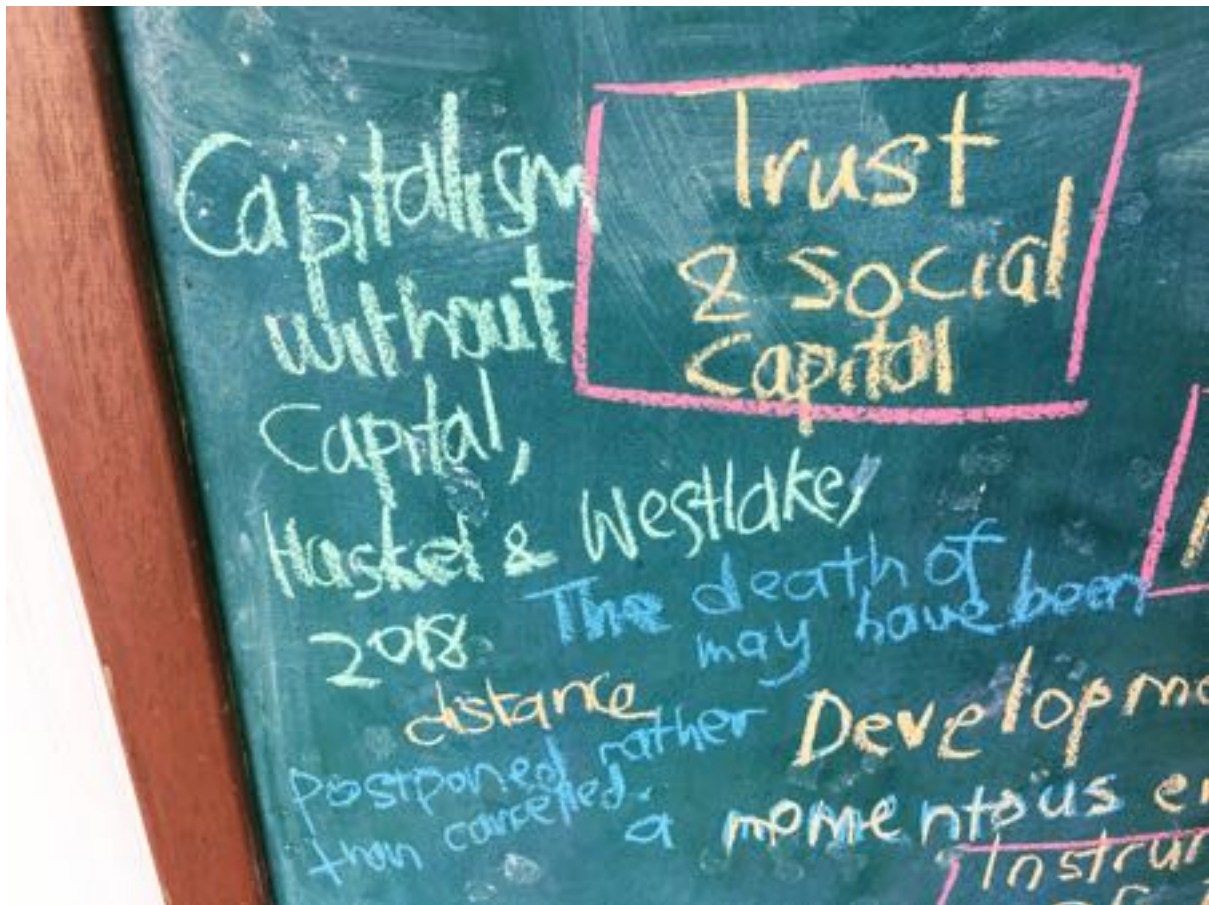 Capitalism
without
Capital,
Haskel & Westlake,
2018.
Trust
& social
capital
The death of
distance
may have been
postponed rather
than cancelled.
Developme
a momentous e
Instru